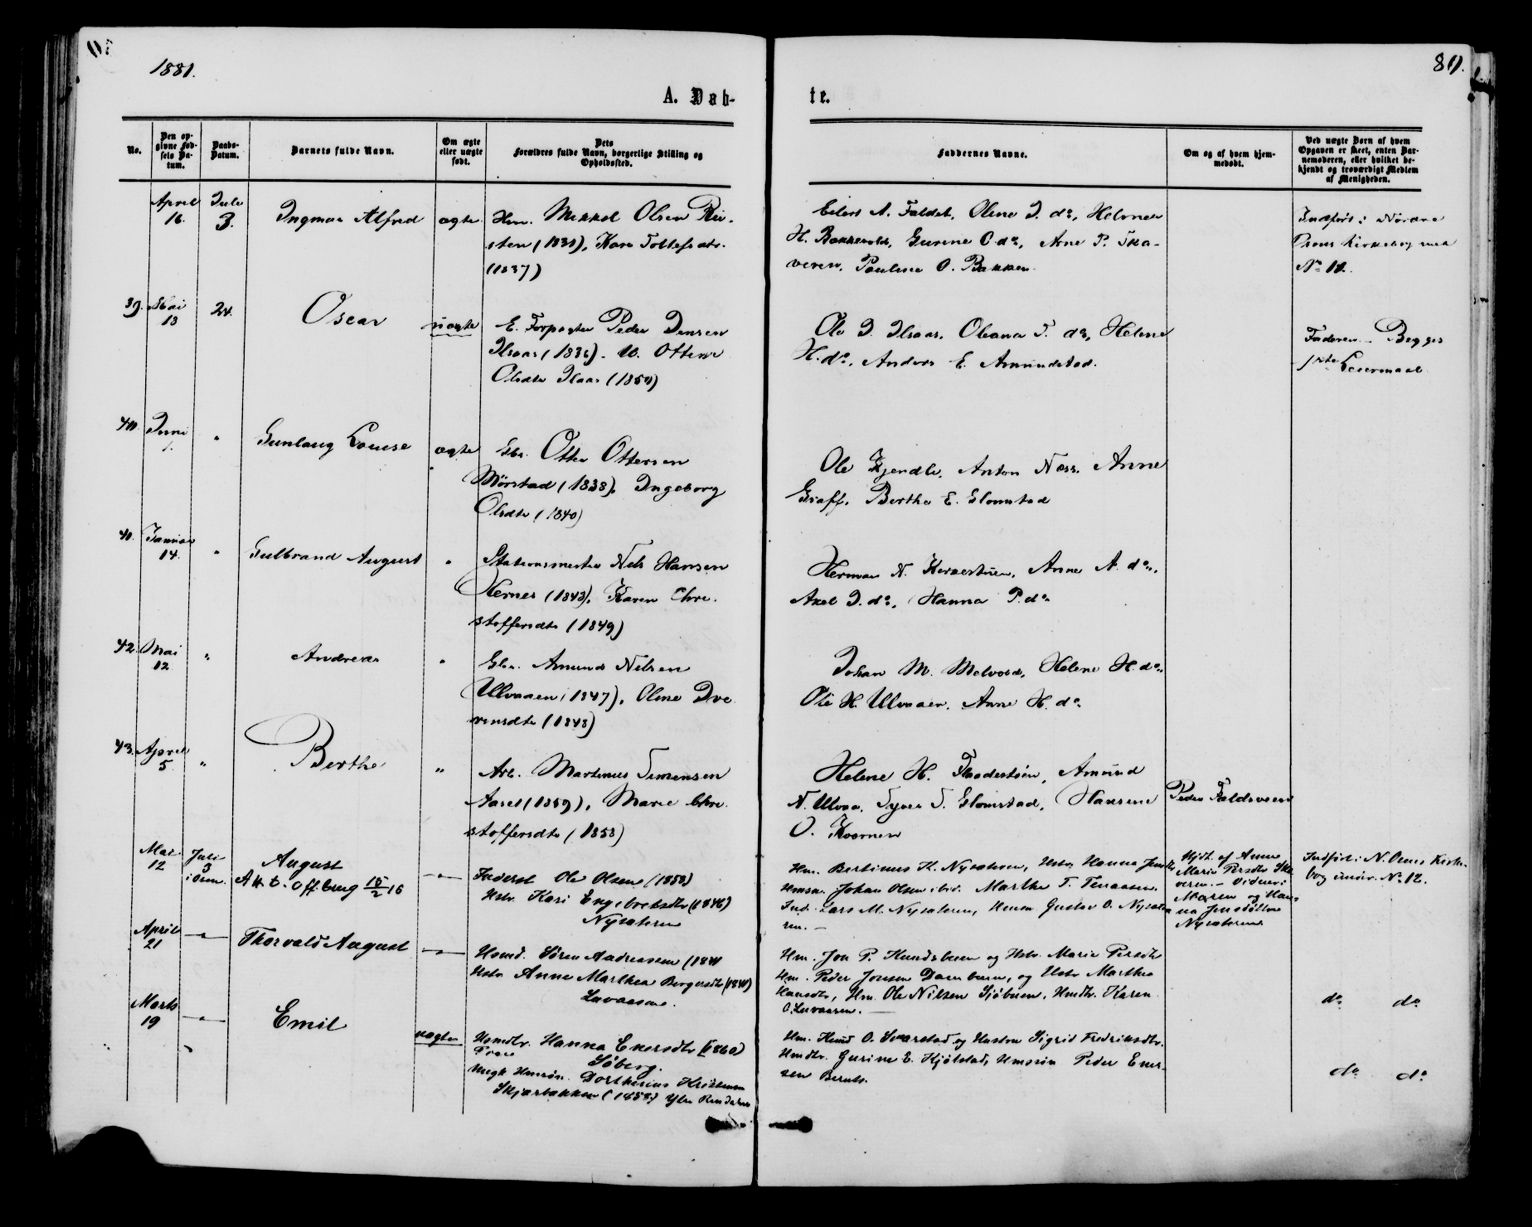 1881.
80.
A. Døb-
te.
No.
Den op-
givne Fød-
sels Da-
tum.
Daabs-
Datum.
Barnets fulde Navn.
Om ægte
eller uægte
født.
Dets
Forældres fulde Navn, borgerlige Stilling og
Opholdssted.
Faddernes Navne.
Om og af hvem hjem-
medøbt.
Ved uægte Børn af hvem
Opgaven er skeet, enten Bar-
nemoderen, eller hvilket be-
kjendt og troværdigt Medlem
af Menigheden.
April
16.
Juli
3.
Ingmar Alfred
ægte
Hm. Mikkel Olsen
(1838), Kari Tollefsdtr.
(1837)
Eilert A. Faldet, Oline J. do, Helene
H. Bakkevold, Gurine O. do, Arne P. Ska-
veren, Pauline O. Bakken.
Indført i Nordre
Osens Kirkebog med
No 11.
39. Mai
13
24.
Oscar
uægte
E. Forpagter Peder Jensen
Ilsaas (1836). U. Olline
Olsdtr Ilsaas (1850)
Ole J. Ilsaas, Oleana T. do, Helene
H. do, Anders E. Amundstad.
Faderen. Begges
1ste Leiermaal
40. Juni
1.
"
Gunlaug Louise
ægte
Gbr. Otter Ottersen
Mørstad (1838), Ingeborg
Olsdtr (1840)
Ole Kjendli, Anton Næss, Anne
Graff, Berthe E. Glomstad
41. Januar
14.
"
Gulbrand August
"
Stationsmester Nils Hansen
Hernes (1843), Karen Chri-
stoffersdtr (1849)
Herman N. , Anne A. do,
Axel J. do, Hanna P. do
42. Mai
12
"
Andreas
"
Gbr. Amund Nilsen
Ulvaaen (1847), Oline Ive
rsdtr (1843)
Johan M. Melvold, Helene H. do,
Ole H. Ulvaaen, Anne H. do
43. April
5.
"
Berthe
"
Arb. Martinus Simensen
Aaset (1859), Marie Chri-
stoffersdtr (1853)
Helene H. , Amund
N. Ulvaa, Syver S. Glomstad, Hansine
O. Kværnen
Peder Faldsveen
Mai
12
Juli
3
i Osen.
August
Att. t. Offburg 15/2 16
Inderst Ole Olsen (1850)
Hstr. Kari Engebretsdtr (1846)
Nysæteren
Hm. Bertinus H. Nysæteren, Hstr. Hanna Jens
Hmsøn. Johan Olsen ibid. Marthe T. Tenaasen.
Ind. Lars M. Nysæteren, Hmsøn Gustav O. Nysæte
ren. —
Hjdt. af Anne
Marie Persdtr Ska
veren. – Vidner:
Maren og Han
na Jensdøttre
Nysæteren
Indført i N. Osens Kirke-
bog under No 12.
April
21
Thorvald August
Husmd. Søren Andreassen (1841
Hstr Anne Marthea Børgersdtr (1840)
Løvaasen.
Hm. Jon P. Hundebuen og Hstr. Marie Persdtr
Hm. Peder Jonsen Dambuen, og Hstr Marthea
Hansdtr, Hm. Ole Nilsen Sjøbuen, Hmdtr. Karen
O. Løvaasen. —
do do
Marts
19
Emil
uægte
Hsmdtr. Hanna Enersdtr (1860)
Søberg.
Ungk Hmsøn. Dorthenius Kristensen
Skjærbakken (1858) Ytre Rendalen
Hm. Knud O. Sværstad og Hustru Sigrid Fredriksdtr.
Hmdtr. Gurine E. Hjøtstad, Hmsøn Peder Ener-
sen Bernts.
do do